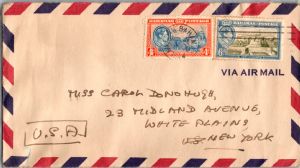 BAHAMAS POSTAGE
BAHAMAS POSTAGE
VIA AIR MAIL
MISS CAROL DONOHUGH,
23 MIDLAND AVENUE,
WHITE PLAINS
NEW YORK
U.S.A